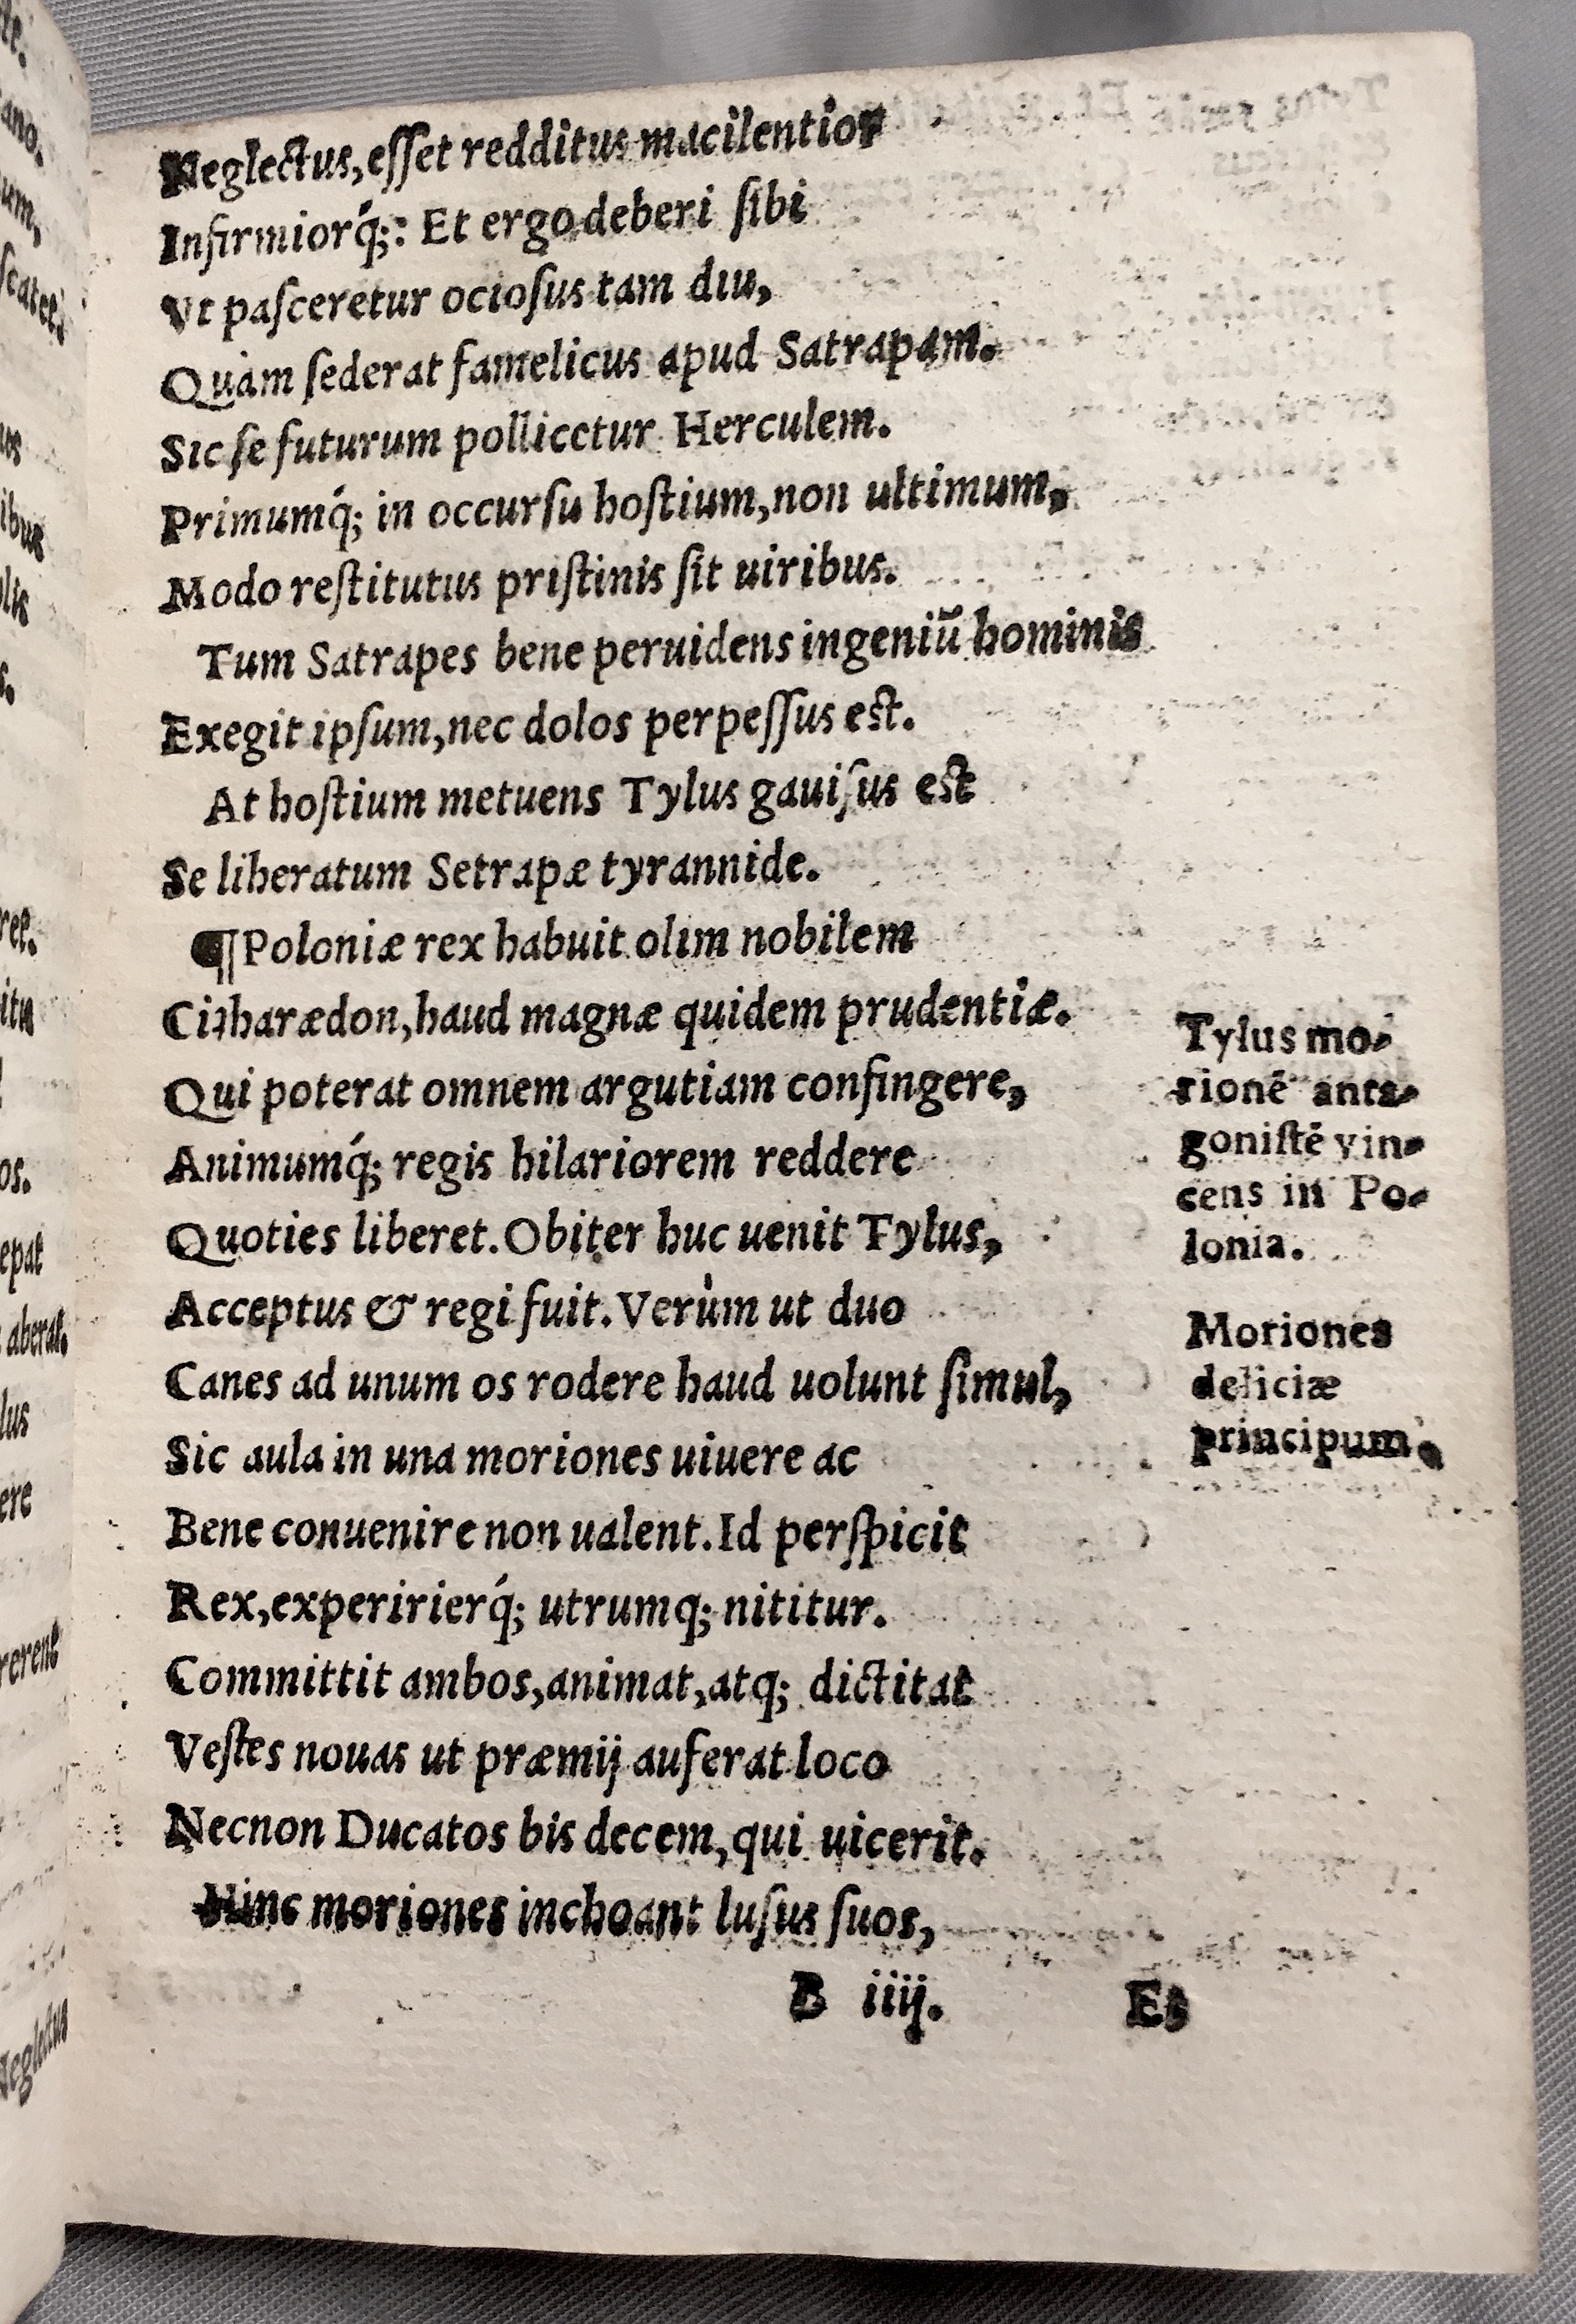 Neglectus,eſſet redditus macilentior
Infirmiorq́;: Et ergo deberi ſibi
Vt paſceretur ocioſus tam diu,
Quàm ſederat famelicus apud Satrapam.
Sic ſe futurum pollicetur Herculem.
Primumq́; in occurſu hoſtium,non ultimum,
Modo reſtitutus priſtinis ſit uiribus.
Tum Satrapes bene peruidens ingeniū hominis
Exegit ipſum,nec dolos perpeſſus eſt.
At hoſtium metuens Tylus gauiſus eſt
Se liberatum Setrapæ tyrannide.
¶Poloniæ rex habuit olim nobilem
Citharædon,haud magnæ quidem prudentiæ.
Qui poterat omnem argutiam confingere,
Animumq́; regis hilariorem reddere
Quoties liberet.Obiter huc uenit Tylus,
Acceptus & regi fuit.Verùm ut duo
Canes ad unum os rodere haud uolunt ſimul,
Sic aula in una moriones uiuere ac
Bene conuenire non ualent.Id perſpicit
Rex,experirierq́; utrumq; nititur.
Committit ambos,animat,atq; dictitat
Veſtes nouas ut præmij auferat loco
Necnon Ducatos bis decem,qui uicerit.
Hinc moriones inchoant luſus ſuos,
B iiij.
Et
Tylus mo-
rionē anta-
goniſtē vin-
cens in Po-
lonia.
Moriones
deliciæ
principum.